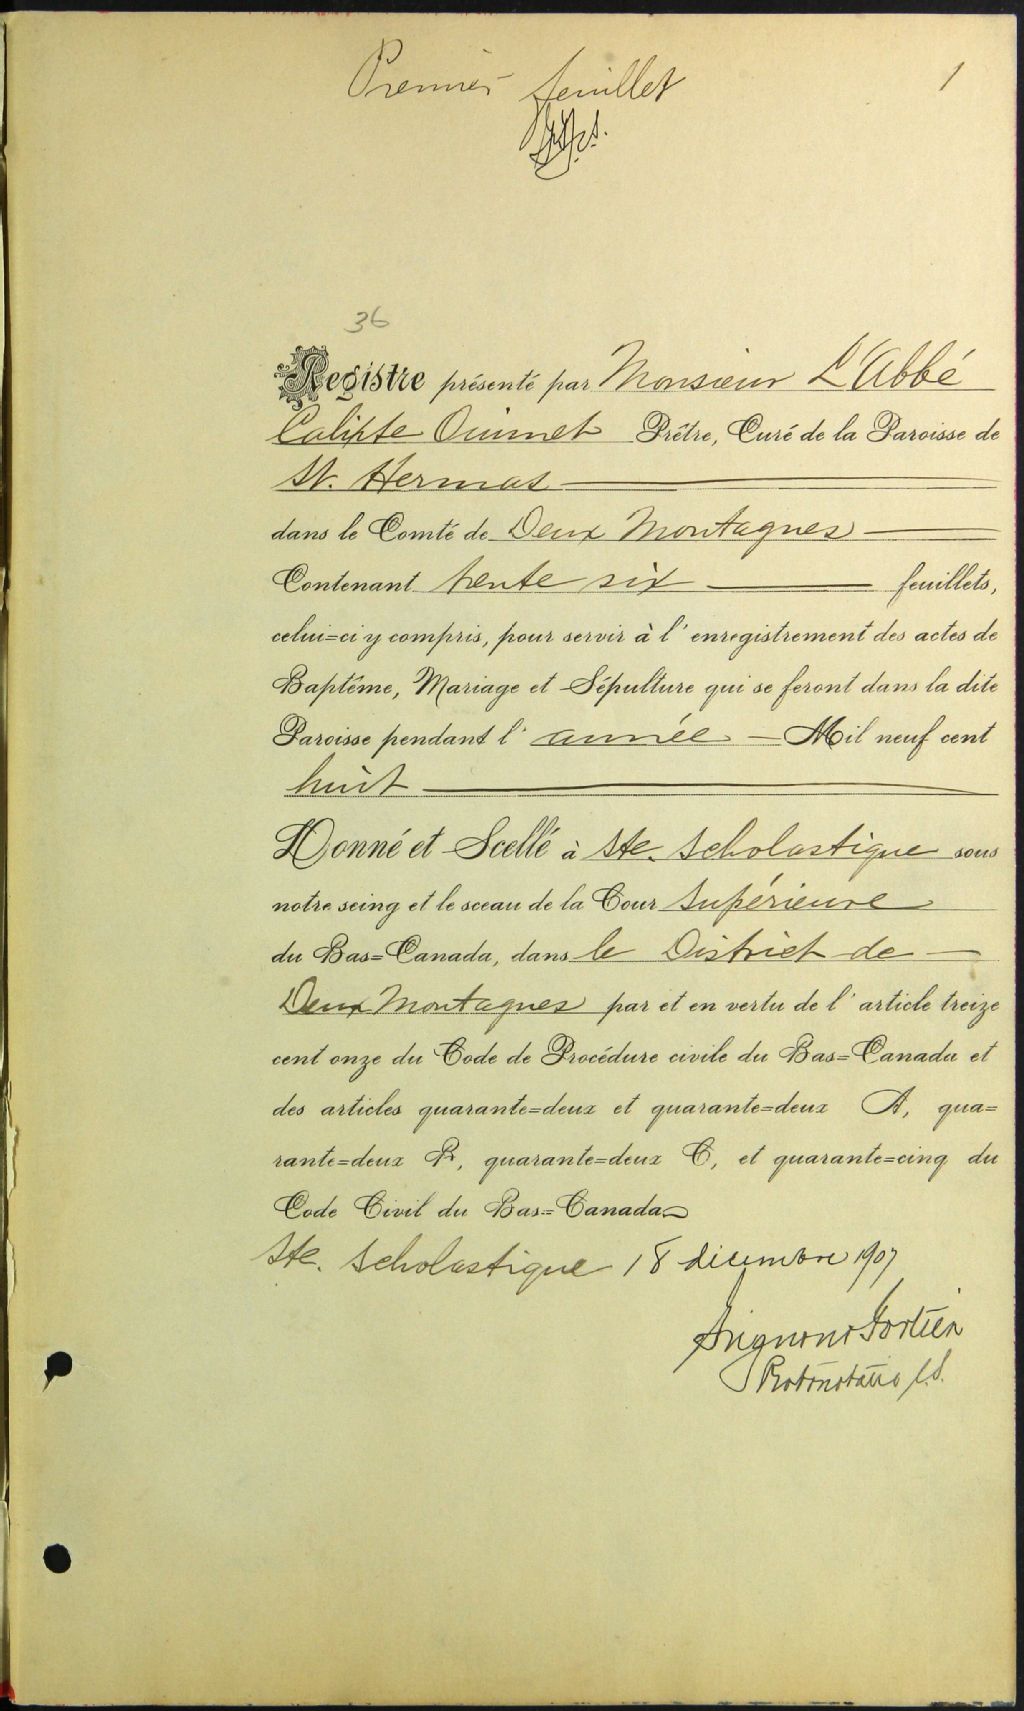 Premier feuillet
1
36
Registre présenté par Monsieur L'Abbé
Calixte Ouimet Prêtre, Curé de la Paroisse de
St. Hermas
dans le Comté de Deux Montagnes
Contenant trente six feuillets,
celui=ci y compris, pour servir à l'enregistrement des actes de
Baptême, Mariage et Sépulture qui se feront dans la dite
Paroisse pendant l'année Mil neuf cent
huit
Donné et Scellé à Ste. Scholastique sous
notre seing et le sceau de la Cour Supérieure
du Bas=Canada, dans le District de
Deux Montagnes par et en vertu de l'article treize
cent onze du Code de Procédure civile du Bas=Canada et
des articles quarante=deux et quarante=deux A, qua=
rante=deux B, quarante=deux C, et quarante=cinq du
Code Civil du Bas=Canada
Ste. Scholastique 18 décembre 1907
Grignon & Fortier
Protonotaire C.S.